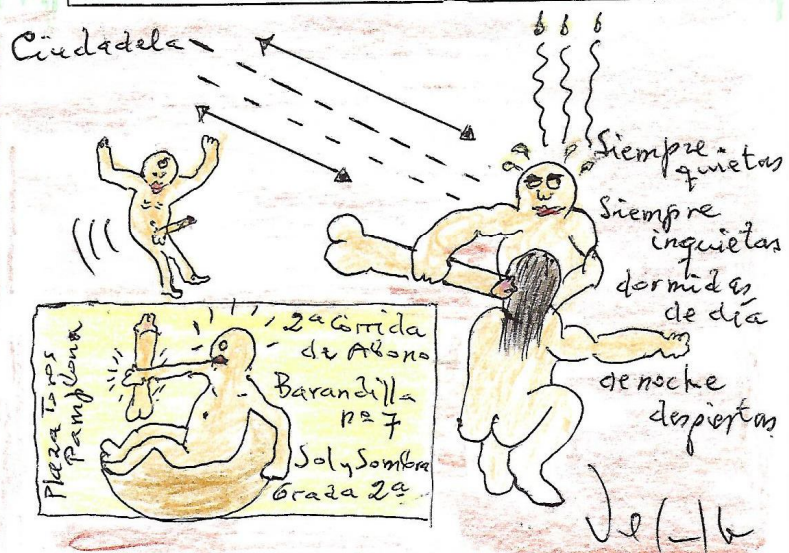 Ciudadela
Siempre
quietas
Siempre
inquietas
dormidas
de día
de noche
despiertas
Plaza Toros
Pamplona
2ª Corrida
de Abono
Barandilla
nº 7
Sol y Sombra
Grada 2ª